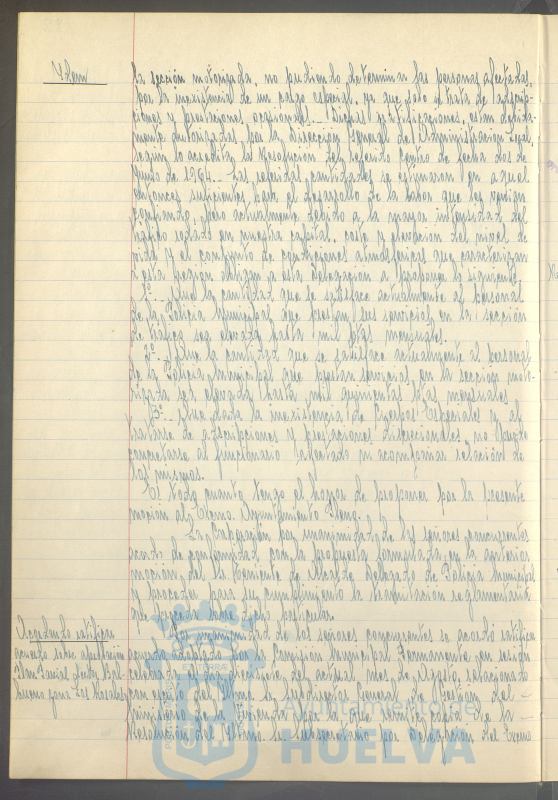 Idem
la sección motorizada, no pudiendo determinar las personas afectadas,
por la inexistencia de un cargo especial, ya que solo se trata de adscrip-
ciones y prestaciones ocasionales.- Dichas gratificaciones, están debida-
mente autorizadas por la Dirección General de Administración Local,
según lo acredita la Resolución del referido Centro de fecha dos de
Junio de 1964.- Las referidas cantidades se estimaron en aquel
entonces suficientes para el desarrollo de la labor que les venían
confiando, pero actualmente debido a la mayor intensidad del
tráfico rodado en nuestra capital, coste y elevación del nivel de
vida y el conjunto de condiciones atmosféricas que caracterizan
a esta región obligan a esta Delegación a proponer lo siguiente:
1º.- Que la cantidad que se satisface actualmente al personal
de la Policía Municipal que prestan sus servicios en la sección
de tráfico sea elevada hasta mil ptas mensuales.
2º.- Que la cantidad que se satisface actualmente al personal
de la Policía Municipal que prestan servicios en la sección moto-
rizada sea elevada hasta mil quinientas ptas mensuales.
3º.- Que dada la inexistencia de Cuerpos Especiales y al
tratarse de adscripciones y prestaciones discrecionales, no puede
concretarse al funcionario afectado ni acompañar relación de
los mismos.
Es todo cuanto tengo el honor de proponer por la presente
moción al Excmo. Ayuntamiento Pleno.
La Corporación por unanimidad de los señores concurrentes
acordó de conformidad con la propuesta formulada en la anterior
moción del Sr. Teniente de Alcalde Delegado de Policía Municipal
y proceder para su cumplimiento la tramitación reglamentaria
Acordando ratificar
acuerdo sobre
Don Daniel
buena para Los Rosales
Por unanimidad de los señores concurrentes se acordó ratificar
acuerdo adoptado por la Comisión Municipal Permanente en sesión
celebrada del actual mes de Agosto, relacionado
con escrito del Iltmo. Sr. Subdirector General de Gestión del
Ministerio de la Vivienda por la que remite copia de la
Resolución del Iltmo. Sr. Subsecretario por delegación del Excmo
Ayuntamiento de
HUELVA